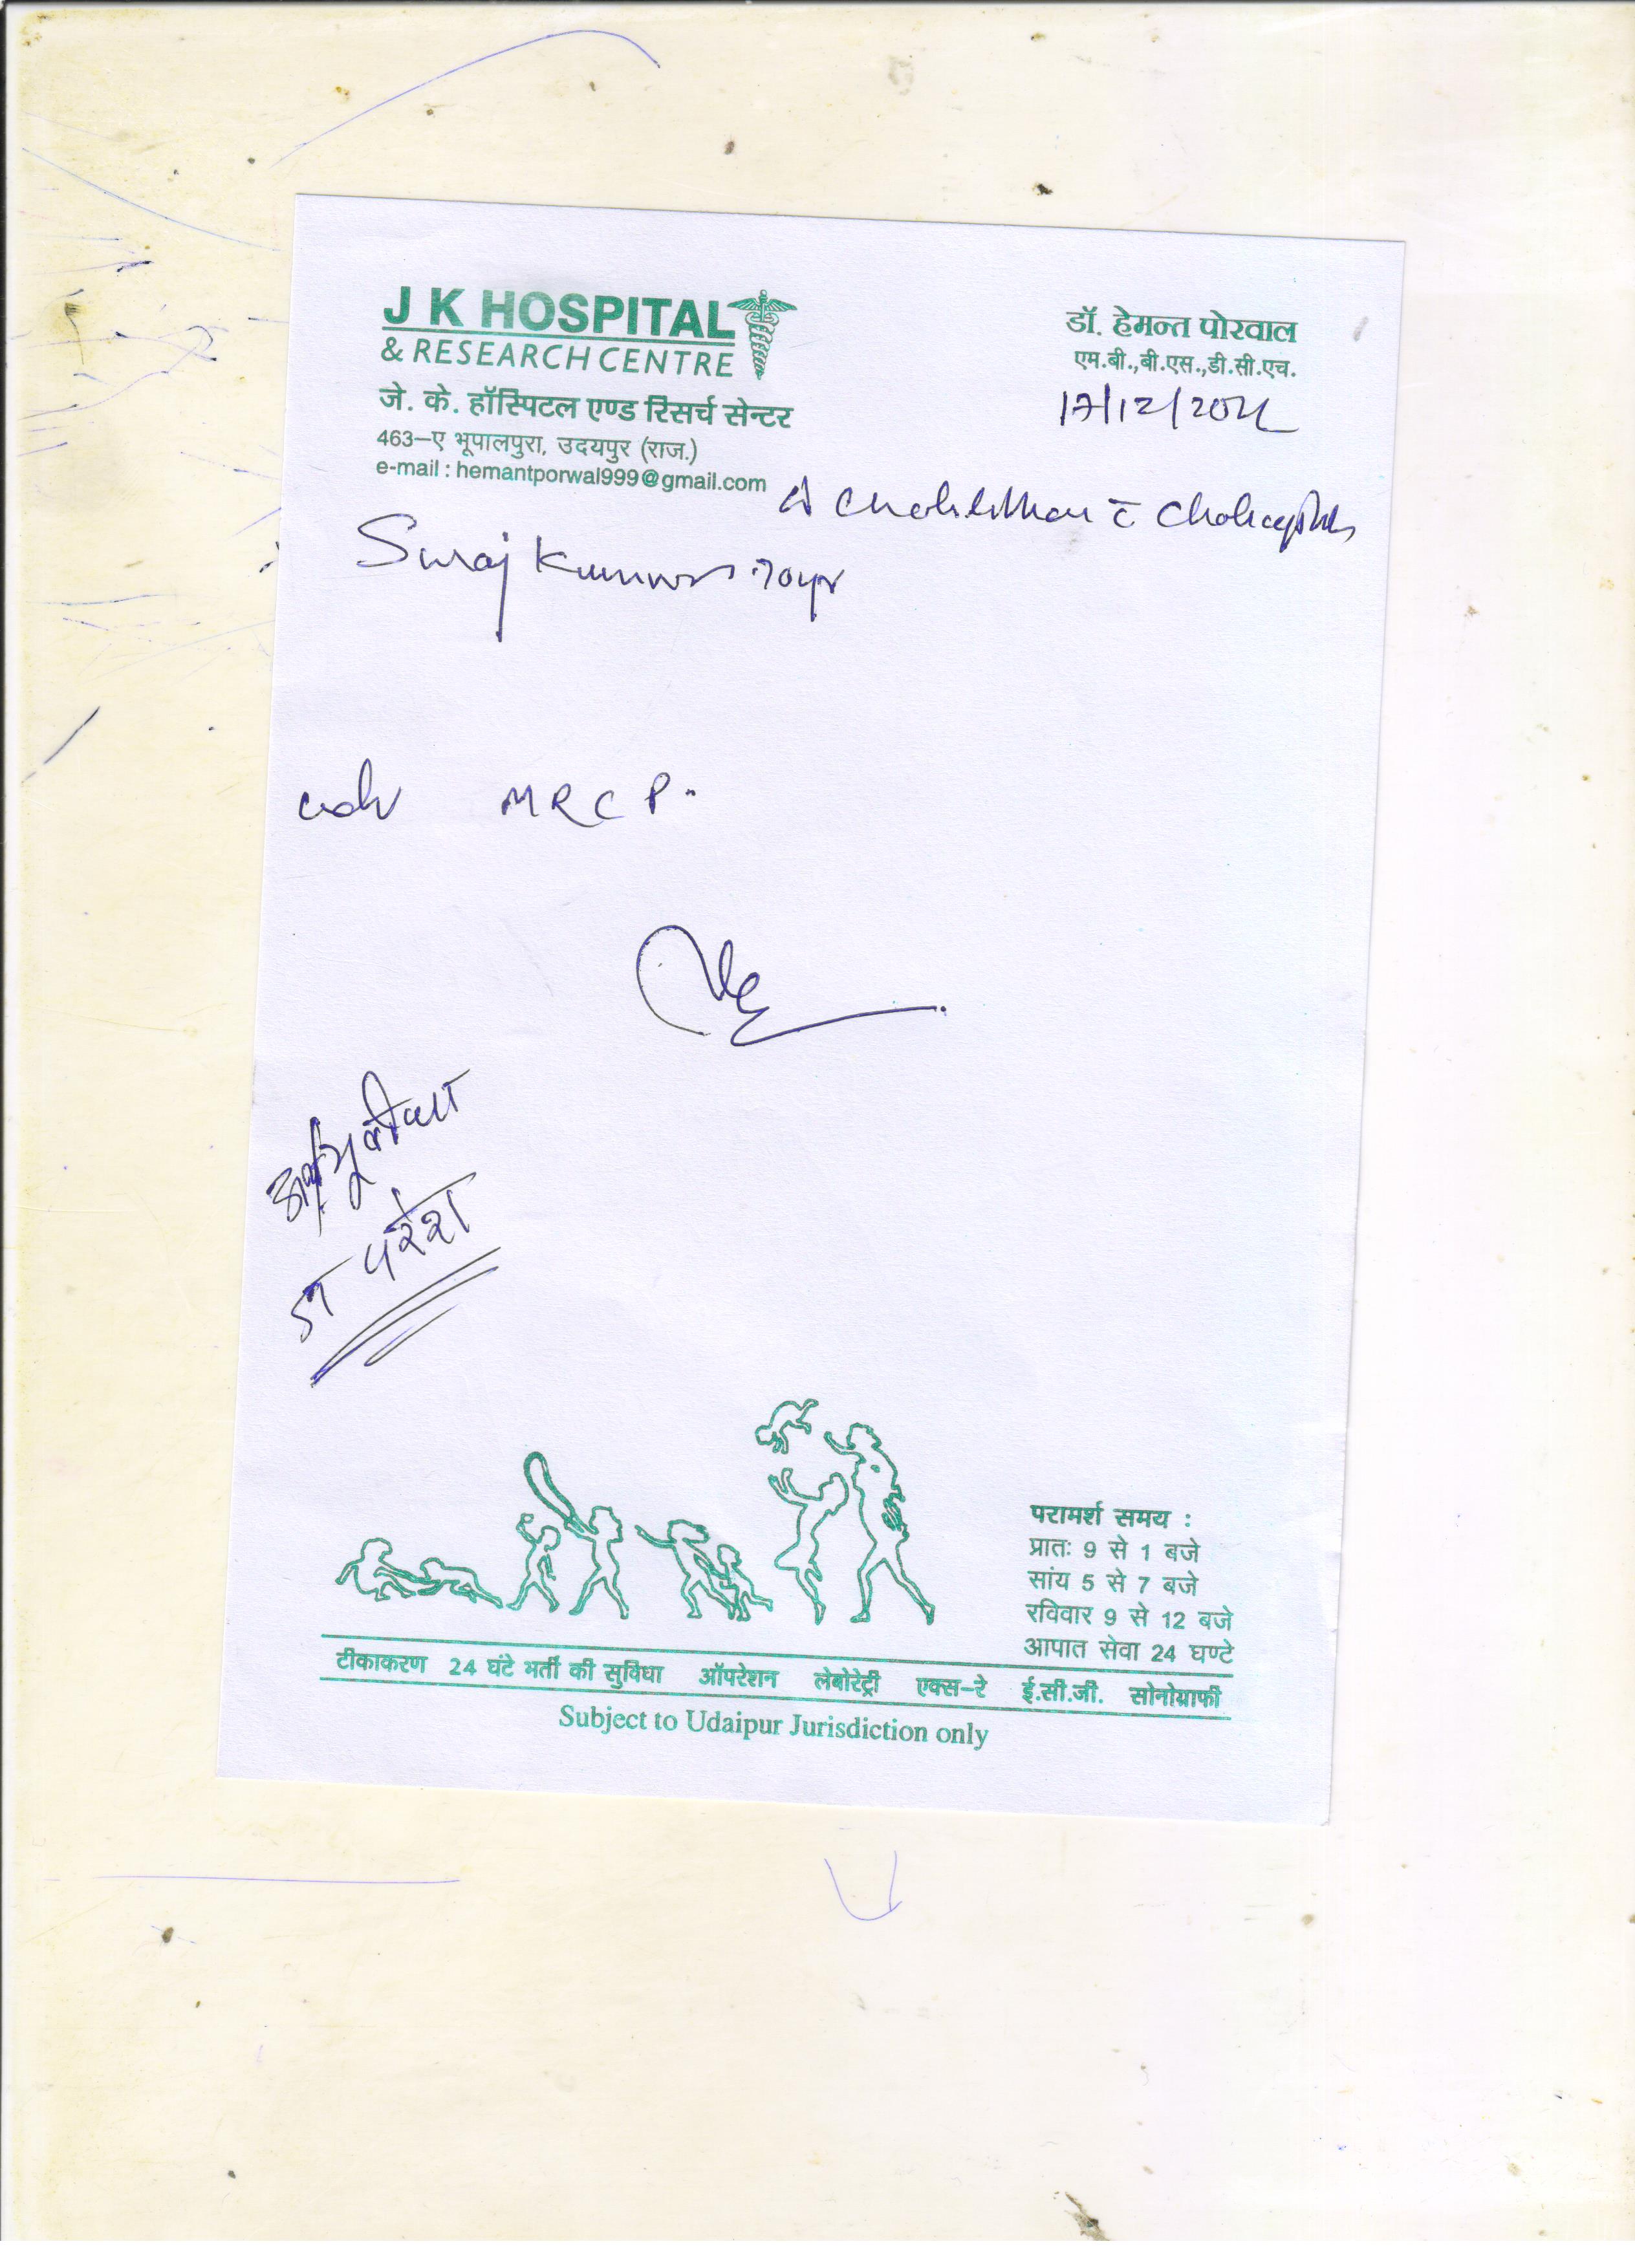 J K HOSPITAL
& RESEARCH CENTRE
जे. के. हॉस्पिटल एण्ड रिसर्च सेन्टर
463–ए भूपालपुरा, उदयपुर (राज.)
e-mail : hemantporwal999@gmail.com
डॉ. हेमन्त पोरवाल
एम.बी.,बी.एस.,डी.सी.एच.
17/12/202
Suraj Kunwar 70yr
adv MRCP.
परेश
परामर्श समय :
प्रातः 9 से 1 बजे
सांय 5 से 7 बजे
रविवार 9 से 12 बजे
आपात सेवा 24 घण्टे
टीकाकरण 24 घंटे भर्ती की सुविधा ऑपरेशन लेबोरेट्री एक्स–रे ई.सी.जी. सोनोग्राफी
Subject to Udaipur Jurisdiction only